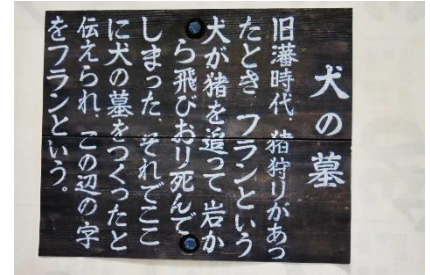 犬の墓
旧藩時代、猪狩りがあっ
たとき、フランという
犬が猪を追って岩か
ら飛びおり死んで
しまった、それでここ
に犬の墓をつくったと
伝えられ、この辺の字
をフランという。